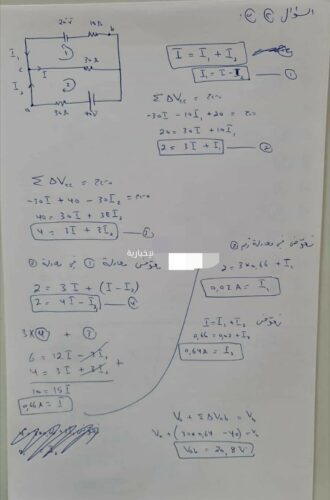 السؤال
20V 10Ω
b
I₁
c I 30Ω
I₂
a
30Ω 40V
I = I₁ + I₂
I₁ = I - I₂
①
Σ ΔV = zero
-30I - 10I₁ + 20 = zero
20 = 30I + 10I₁
2 = 3I + I₁ ②
Σ ΔV = zero
-30I + 40 - 30I₂ = zero
40 = 30I + 30I₂
4 = 3I + 3I₂ ③
للإخبارية
نعوض ① في معادلة ②
2 = 3I + (I - I₂)
2 = 4I - I₂ ④
3×④ + ③
6 = 12I - 3I₂
4 = 3I + 3I₂ +
10 = 15I
0,66A = I
نعوض في معادلة رقم ②
2 = 3×0,66 + I₁
0,02A = I₁
نعوض I = I₁ + I₂
0,66 = 0,02 + I₂
0,64A = I₂
Vₐ + Σ ΔVab = V_b
Vₐ + (30×0,64 - 40) = V_b
Vab = 20,8V